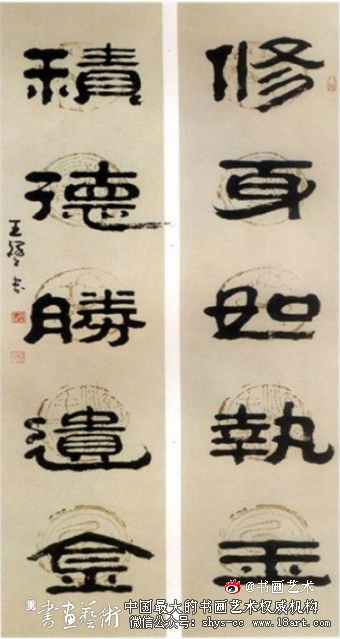 修身如執玉
積德勝遺金
@书画艺术
書畫藝術
中国最大的书画艺术权威机构
微信公众号：shys-cc www.18art.com